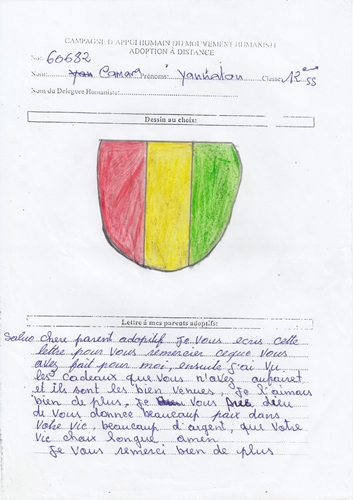 CAMPAGNE D'APPUI HUMAIN DU MOUVEMENT HUMANISTE
ADOPTION À DISTANCE
No: 60682
Nom: Camara Prénoms: Yankalan Classe: 12eme SS
Nom du Délégué Humaniste:
Dessin au choix:
Lettre à mes parents adoptifs:
Saluo chere parent adoptif Je vous ecris cette
lettre pour vous remercier ceque vous
avez fait pour moi, ensuite j'ai vu
les cadeaux que vous n'avez
et ils sont les bien venues, Je l'aimais
bien de plus, Je vous dieu
de vous donnee beaucoup paix dans
votre vie, beaucoup d'argent, que votre
vic longue. amen
Je vous remerci bien de plus